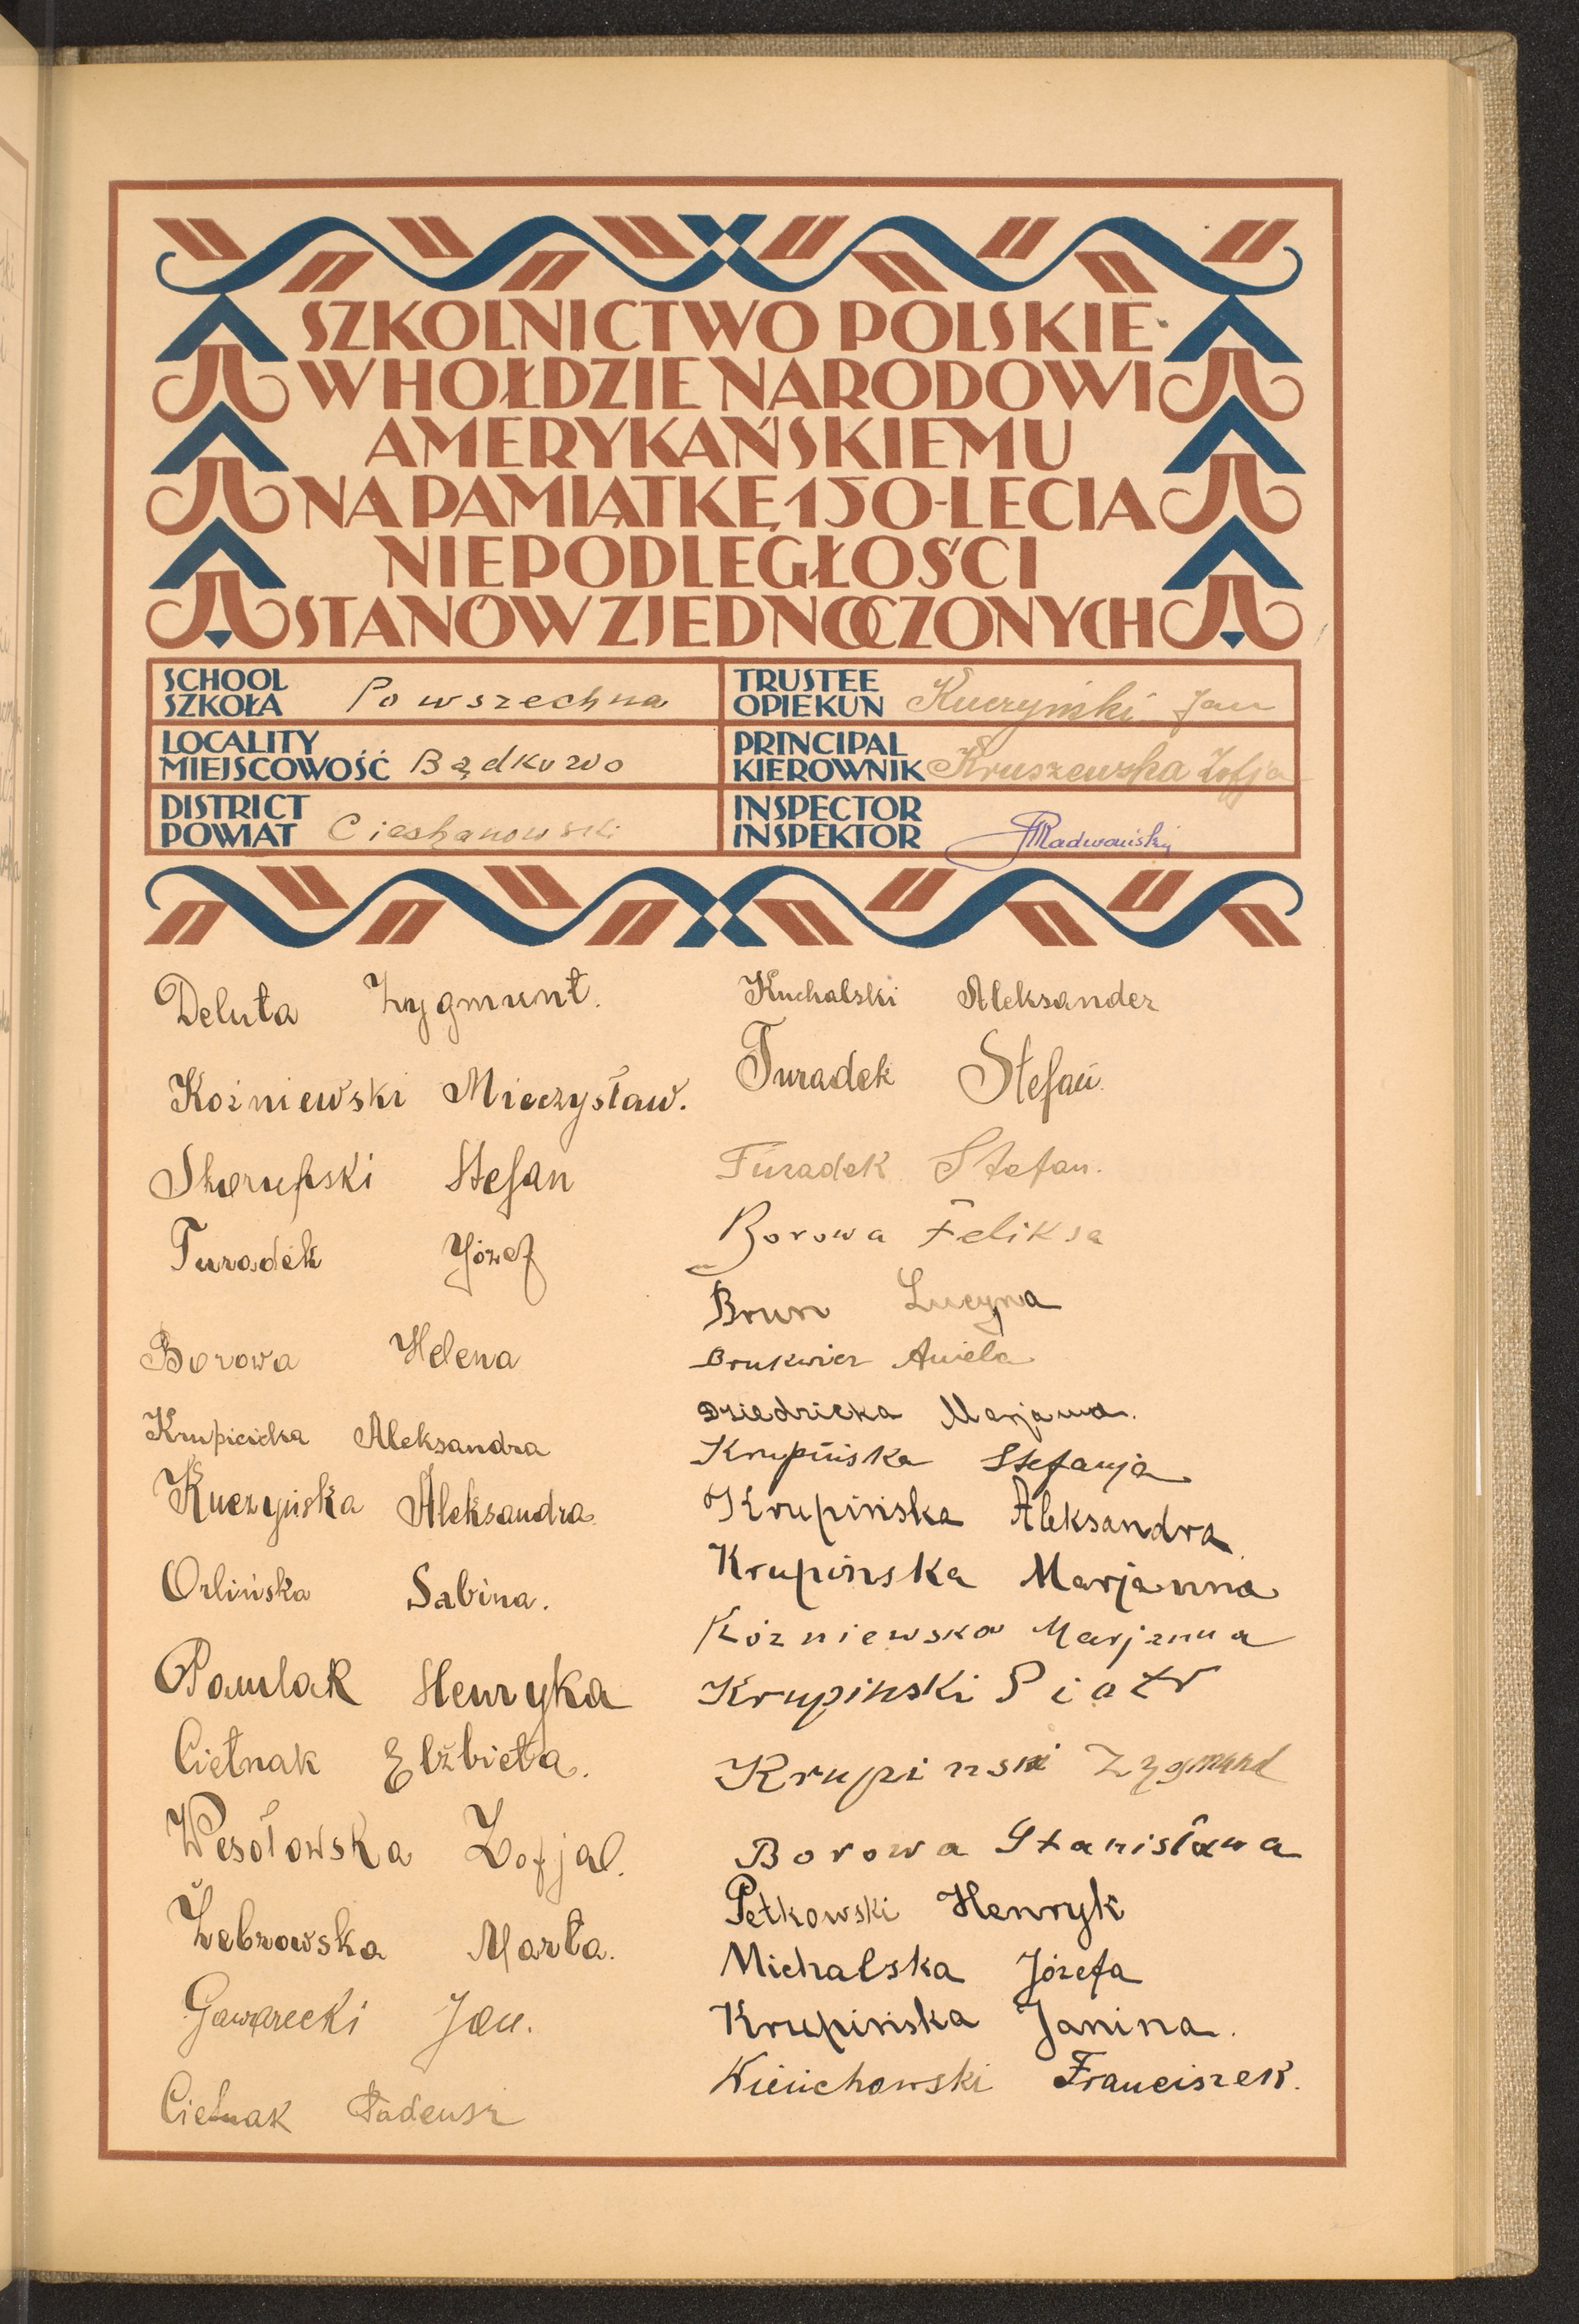 SZKOLNICTWO POLSKIE
W HOŁDZIE NARODOWI
AMERYKAŃSKIEMU
NA PAMIĄTKĘ 150-LECIA
NIEPODLEGŁOŚCI
STANÓW ZJEDNOCZONYCH
SCHOOL
SZKOŁA Powszechna
TRUSTEE
OPIEKUN Kuczyński Jan
LOCALITY
MIEJSCOWOŚĆ Bądkowo
PRINCIPAL
KIEROWNIK Kruszewska Zofja
DISTRICT
POWIAT Ciechanowski
INSPECTOR
INSPEKTOR Radwański
Deluta Zygmunt.
Koźniewski Mieczysław.
Skorupski Stefan
Turadek Józef
Borowa Helena
Aleksandra
Kuczyńska Aleksandra.
Orlińska Sabina.
Pawlak Henryka
Cietnak Elżbieta.
Wesołowska Zofja.
Żebrowska Marta.
Gawarecki Jan.
Cietnak Tadeusz
Kuchalski Aleksander
Turadek Stefan.
Turadek Stefan.
Borowa Feliksa
Brun Lucyna
Brukwicz Aniela
Dziedzicka Marjanna.
Krupińska Stefanja
Krupińska Aleksandra
Krupińska Marjanna
Kóźniewska Marjanna
Krupinski Piotr
Krupinski Zygmund
Borowa Stanisława
Petkowski Henryk
Michalska Józefa
Krupińska Janina.
Franciszek.